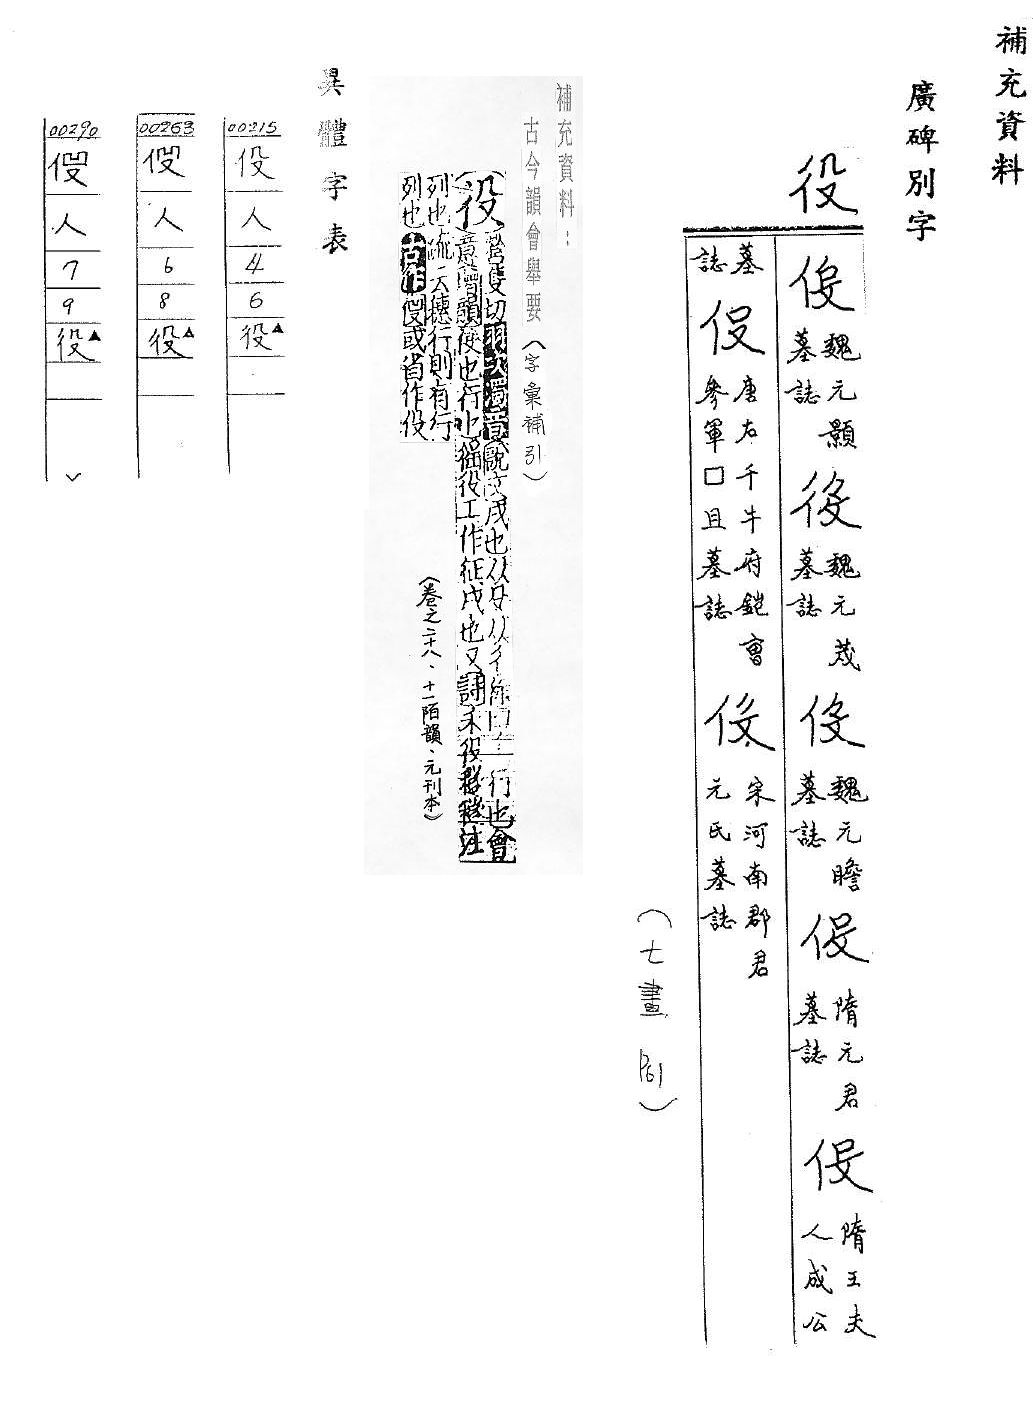 補充資料
廣碑別字
役
伇 魏元顥墓誌
役 魏元茂墓誌
伇 魏元瞻墓誌
伇 隋元君墓誌
伇 隋王夫人成公
墓誌
伇 唐左千牛府鎧曹參軍口且墓誌
伇 宋河南郡君元氏墓誌
(七畫 P61)
補充資料:
古今韻會舉要(字彙補引)
役 營隻切羽次濁音說文戍也从殳从彳徐曰彳行也會
意增韻使也行也徭役工作征戍也又詩禾役穟穟注
列也疏云穗行則有行
列也古作伇或省作役
(卷之二十八.十一陌韻.元刊本)
異體字表
00215
伇
人
4
6
役▲
00263
人
6
8
役▲
00290
人
7
9
役▲